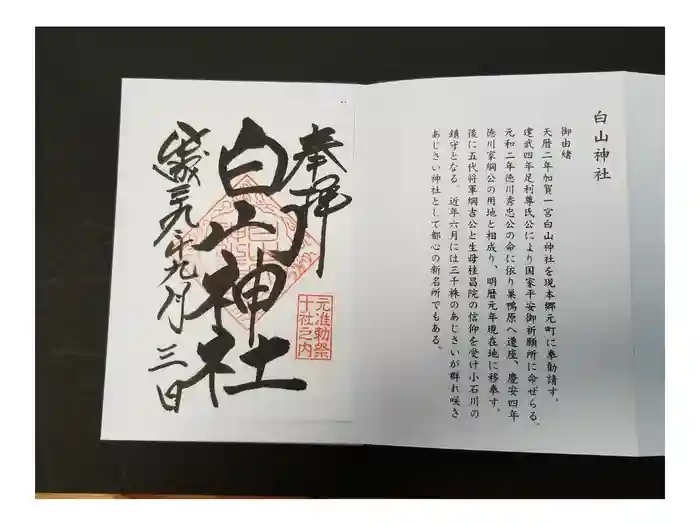 白山神社
御由緒
天暦二年加賀一宮白山神社を現本郷元町に奉勧請す。
建武四年足利尊氏公により国家平安御祈願所に命ぜらる。
元和二年徳川秀忠公の命に依り巣鴨原へ遷座、慶安四年
徳川家綱公の用地と相成り、明暦元年現在地に移奉す。
後に五代将軍綱吉公と生母桂昌院の信仰を受け小石川の
鎮守となる。近年六月には三千株のあじさいが群れ咲き
あじさい神社として都心の新名所でもある。
奉拝
元准勅祭
十社之内
白山神社
平成二九年九月三日